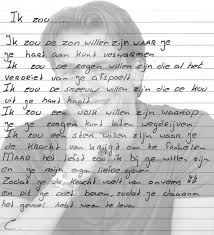 Ik zou.....
Ik zou de zon willen zijn WAAR je
je hart aan kunt verwarmen
Ik zou de regen willen zijn die al het
verdriet van je afspoelt
Ik zou de sneeuw willen zijn die de kou
uit je hart haalt
Ik zou een wolk willen zijn waarop
je je zorgen kunt laten wegdrijven
Ik zou een ster willen zijn waar je
de kracht van krijgt om te
MAAR het liefst zou ik bij je willen zijn
en je mijn liefde geven
Zodat je de kracht voelt van
en dit je goed doen, zodat je daarom
het gevoel hebt weer te leven